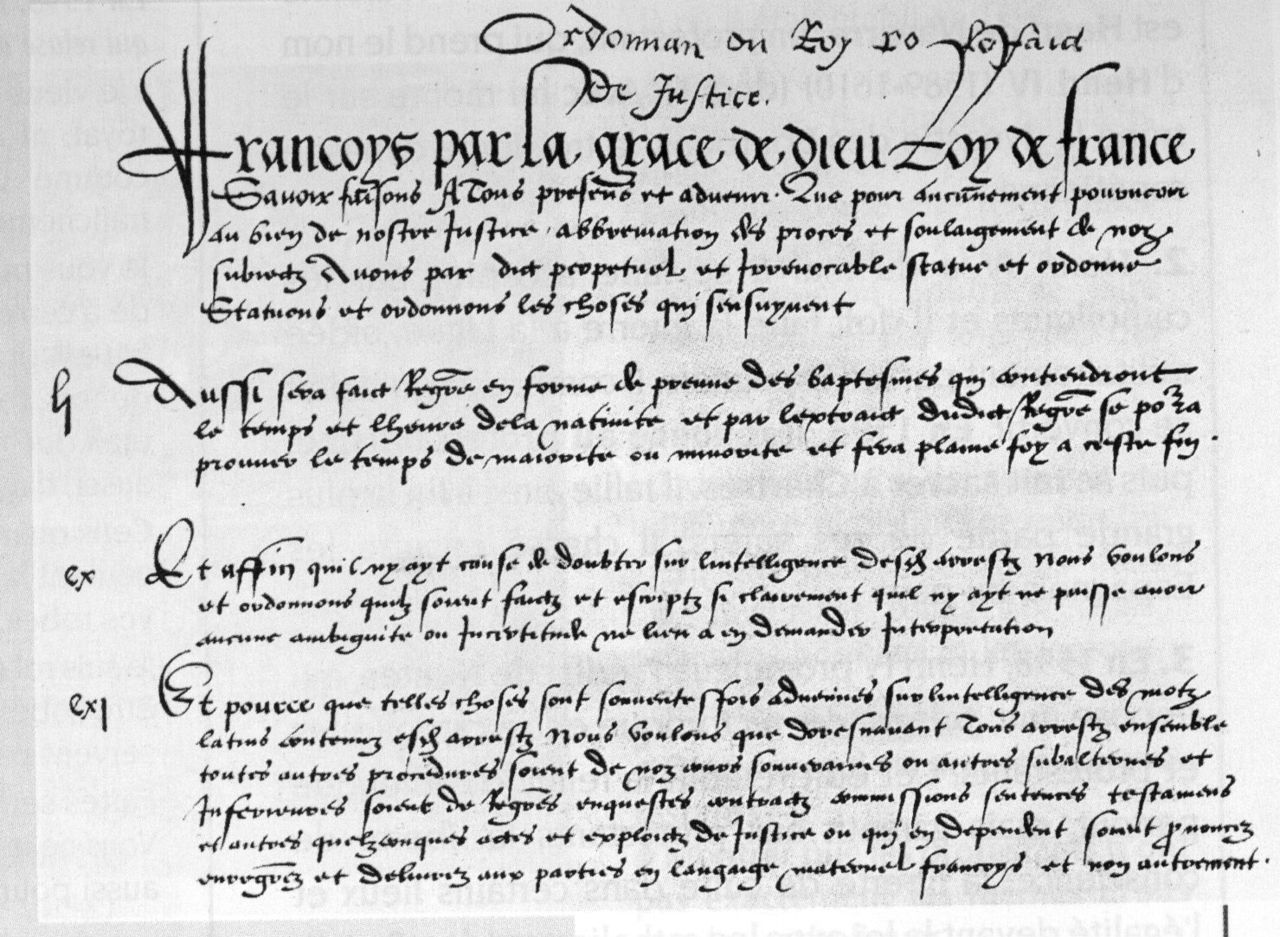 Ordonnan du Roy
de Justice.
Francoys par la grace de dieu Roy de france
Savoir faisons A Tous presens et advenir. Que pour aucunement pourveoir
au bien de nostre Justice, abbreviation des proces et soulaigement de noz
subiectz Avons par dict perpetuel et Irrevocable statue et ordonne
Statuons et ordonnons les choses qui sensuyvent
lj Aussi sera faict Regre en forme de preuve des baptesmes qui contiendront
le temps et lheure dela nativite et par lextraict dudict Regre se porra
prouver le temps de maiorite ou minorite et fera plaine foy a ceste fin.
cx Et affin quil ny ayt cause de doubter sur lintelligence desd arrestz Nous voulons
et ordonnons quilz soient faictz et escriptz si clairement quil ny ayt ne puisse avoir
aucune ambiguite ou Incertitude ne lieu a en demander Interpretation
cxj Et pource que telles choses sont souventesfois advenues sur lintelligence des motz
latins contenuz esd arrestz Nous voulons que doresnavant Tous arrestz ensemble
toutes autres procedures soient de noz cours souveraines ou autres subalternes et
Inferieures soient de Regres enquestes contractz commissions sentences testamens
et autres quelzconques actes et exploictz de Justice ou qui en dependent soient pronocez
enregrez et delivrez aux parties en langaige maternel francoys et non autrement.